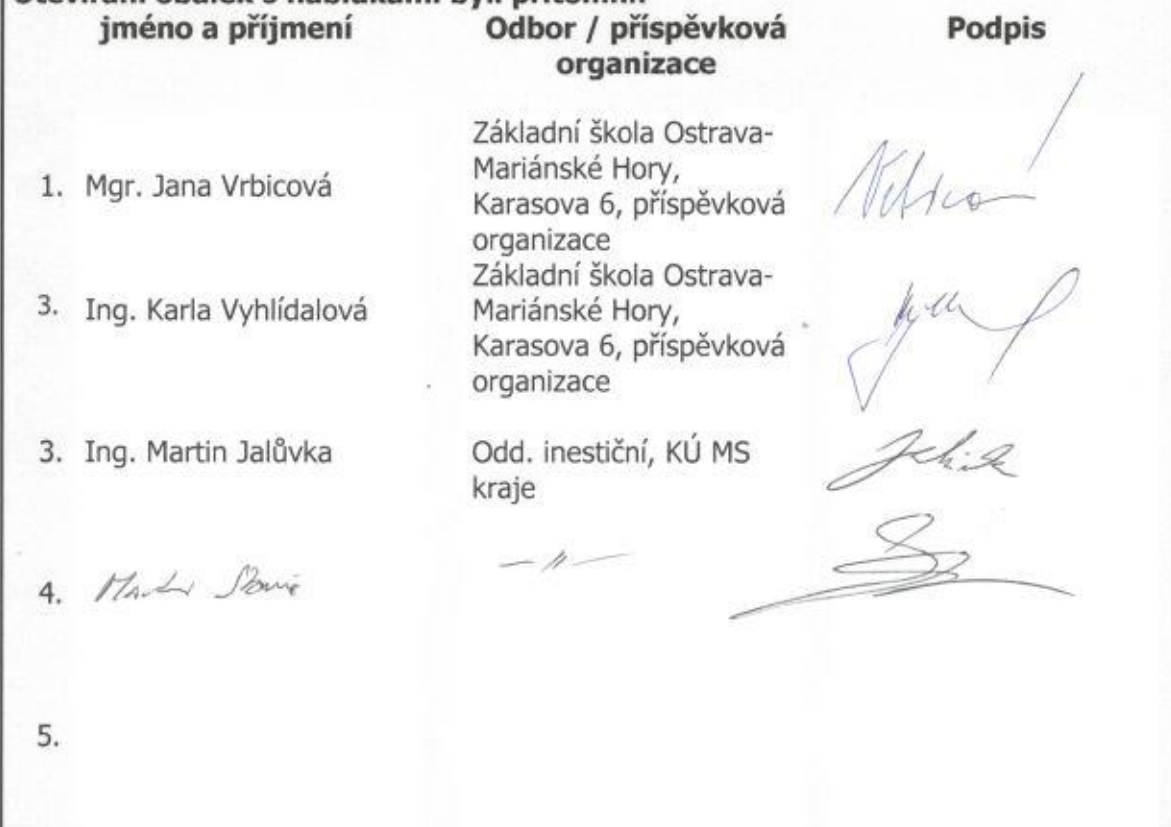 Otevírání obálek s nabídkami byli přítomni:
jméno a příjmení Odbor / příspěvková organizace Podpis
1. Mgr. Jana Vrbicová
Základní škola Ostrava-
Mariánské Hory,
Karasova 6, příspěvková
organizace
3. Ing. Karla Vyhlídalová
Základní škola Ostrava-
Mariánské Hory,
Karasova 6, příspěvková
organizace
3. Ing. Martin Jalůvka
Odd. inestiční, KÚ MS
kraje
4.
— 〃 —
5.